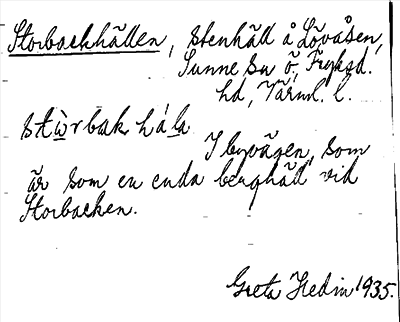 Storbackhällen, stenhäll å Lövåsen,
Sunne sn ö, Fryksd.
hd, Värml. l.
stẁrbak hála
I byvägen, som
är som en enda berghäll vid
Storbacken.
Greta Hedin 1935.